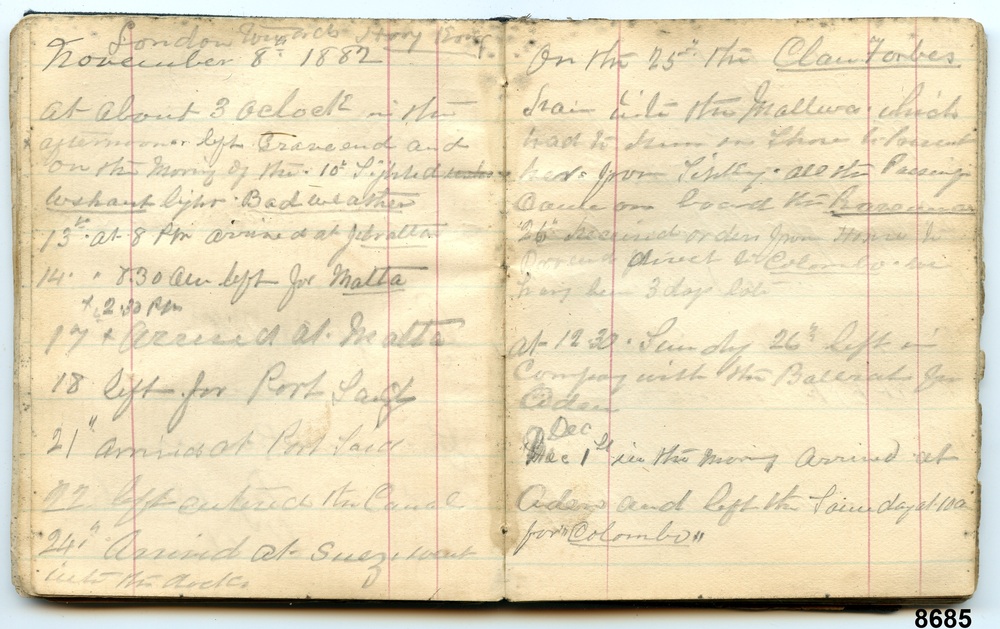 London Towards Hong Kong
November 8th 1882
at about 3 oclock in the
afternoon left Gravesend and
on the Morning of the 10th Sighted
Ushant light. Bad weather
13th at 8 Pm arrived at Gibralta
14 " 8.30 am left for Malta
x 2.30 Pm
17 x Arrived at Malta
18 left for Port Said
21st arrived at Port Said
22 left entered the Canal
24th Arrived at Suez went
into the docks
On the 25th the Clan Forbes
ran into the Mallwa which
had to run on Shore to prevent
her from Sinking. all the Passengers
came on board the
26th received orders from Home to
Proceed direct to Colombo we
being 3 days late
at 12.30. Sunday 26th left in
Company with the Ballarat for
Aden
Dec
Dec 1st in the morning arrived at
Aden and left the Same day at 10
for "Colombo"
8685